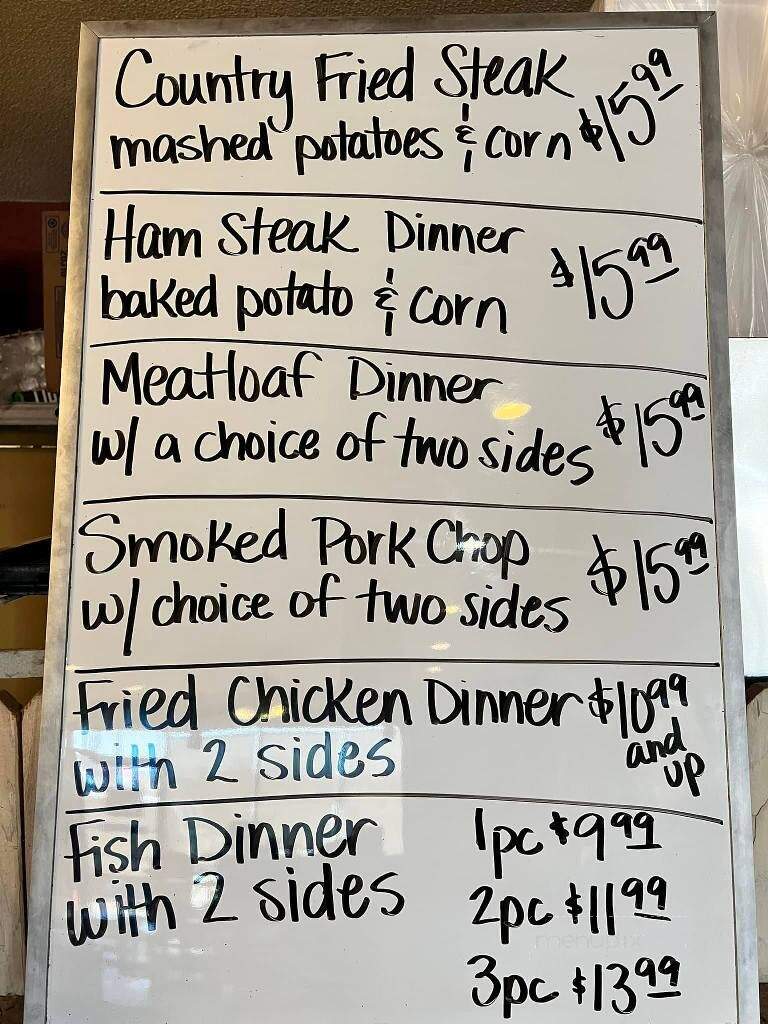 Country Fried Steak
mashed potatoes & corn $15.99
Ham Steak Dinner
baked potato & corn $15.99
Meatloaf Dinner
w/ a choice of two sides $15.99
Smoked Pork Chop
w/ choice of two sides $15.99
Fried Chicken Dinner $10.99
with 2 sides and up
Fish Dinner 1pc $9.99
with 2 sides 2pc $11.99
3pc $13.99